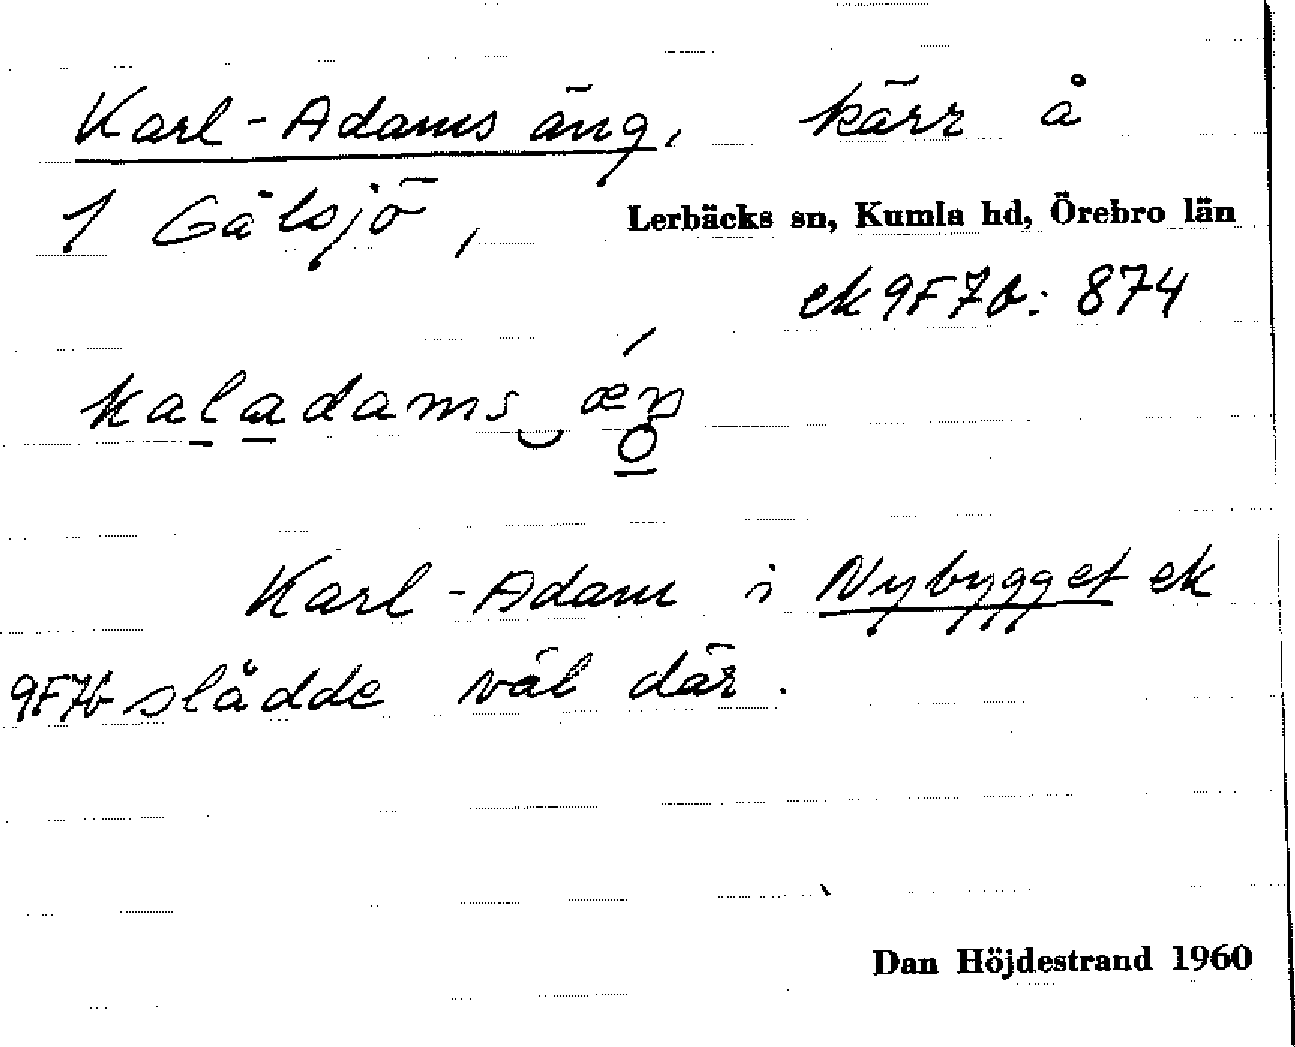 Karl-Adams äng, kärr å
1 Gålsjö, Lerbäcks sn, Kumla hd, Örebro län
ek 9F7b: 874
kaladams æŋ
Karl-Adam i Nybygget ek
9F7b slådde väl där.
Dan Höjdestrand 1960